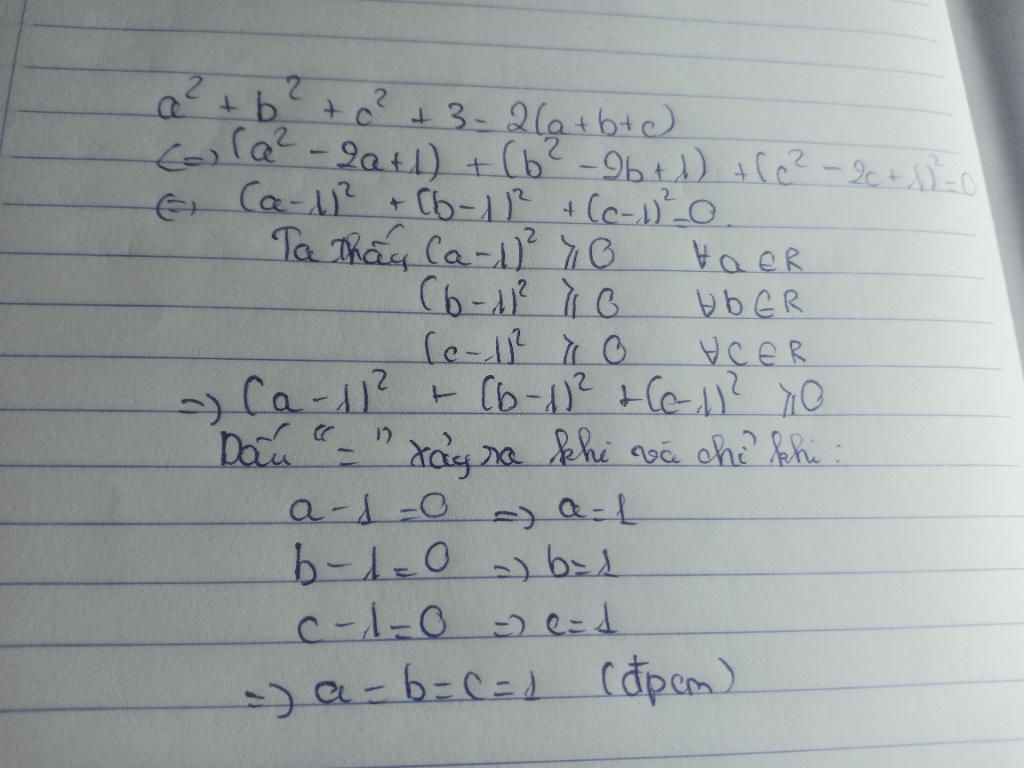 a² + b² + c² + 3 = 2(a+b+c)
<=> (a² - 2a+1) + (b² - 2b+1) + (c² - 2c+1)² = 0
<=> (a-1)² + (b-1)² + (c-1)² = 0.
Ta thấy (a-1)² ≥ 0 ∀a∈R
(b-1)² ≥ 0 ∀b∈R
(c-1)² ≥ 0 ∀c∈R
=> (a-1)² + (b-1)² + (c-1)² ≥ 0
Dấu "=" xảy ra khi và chỉ khi:
a-1=0 => a=1
b-1=0 => b=1
c-1=0 => c=1
=> a=b=c=1 (đpcm)